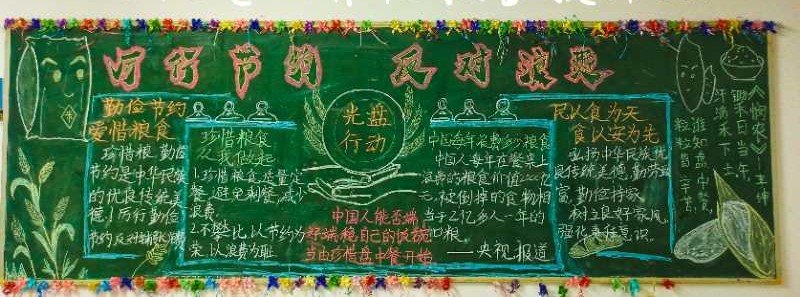 厉行节约 反对浪费
勤俭节约
爱惜粮食
珍惜粮 勤俭
节约是中华民族
的优良传统美
德!厉行勤俭
节约反对铺张浪费
珍惜粮食
从我做起
1.珍惜粮食适量定
餐,避免剩餐,减少
浪费。
2.不攀比,以节约为
荣,以浪费为耻
光盘
行动
中国人能否端
好端稳自己的饭碗
当由珍惜盘中餐开始
中国每年浪费多少粮食
中国人每年在餐桌上
浪费的粮食价值2000亿
元,被倒掉的食物相
当于2亿多人一年的
口粮。
——央视报道
民以食为天
食以安为先
弘扬中华民族优
良传统美德,勤劳致
富,勤俭持家
树立良好家风
强化责任意识。
《悯农》——李绅
锄禾日当午
汗滴禾下土
谁知盘中餐
粒粒皆辛苦
米